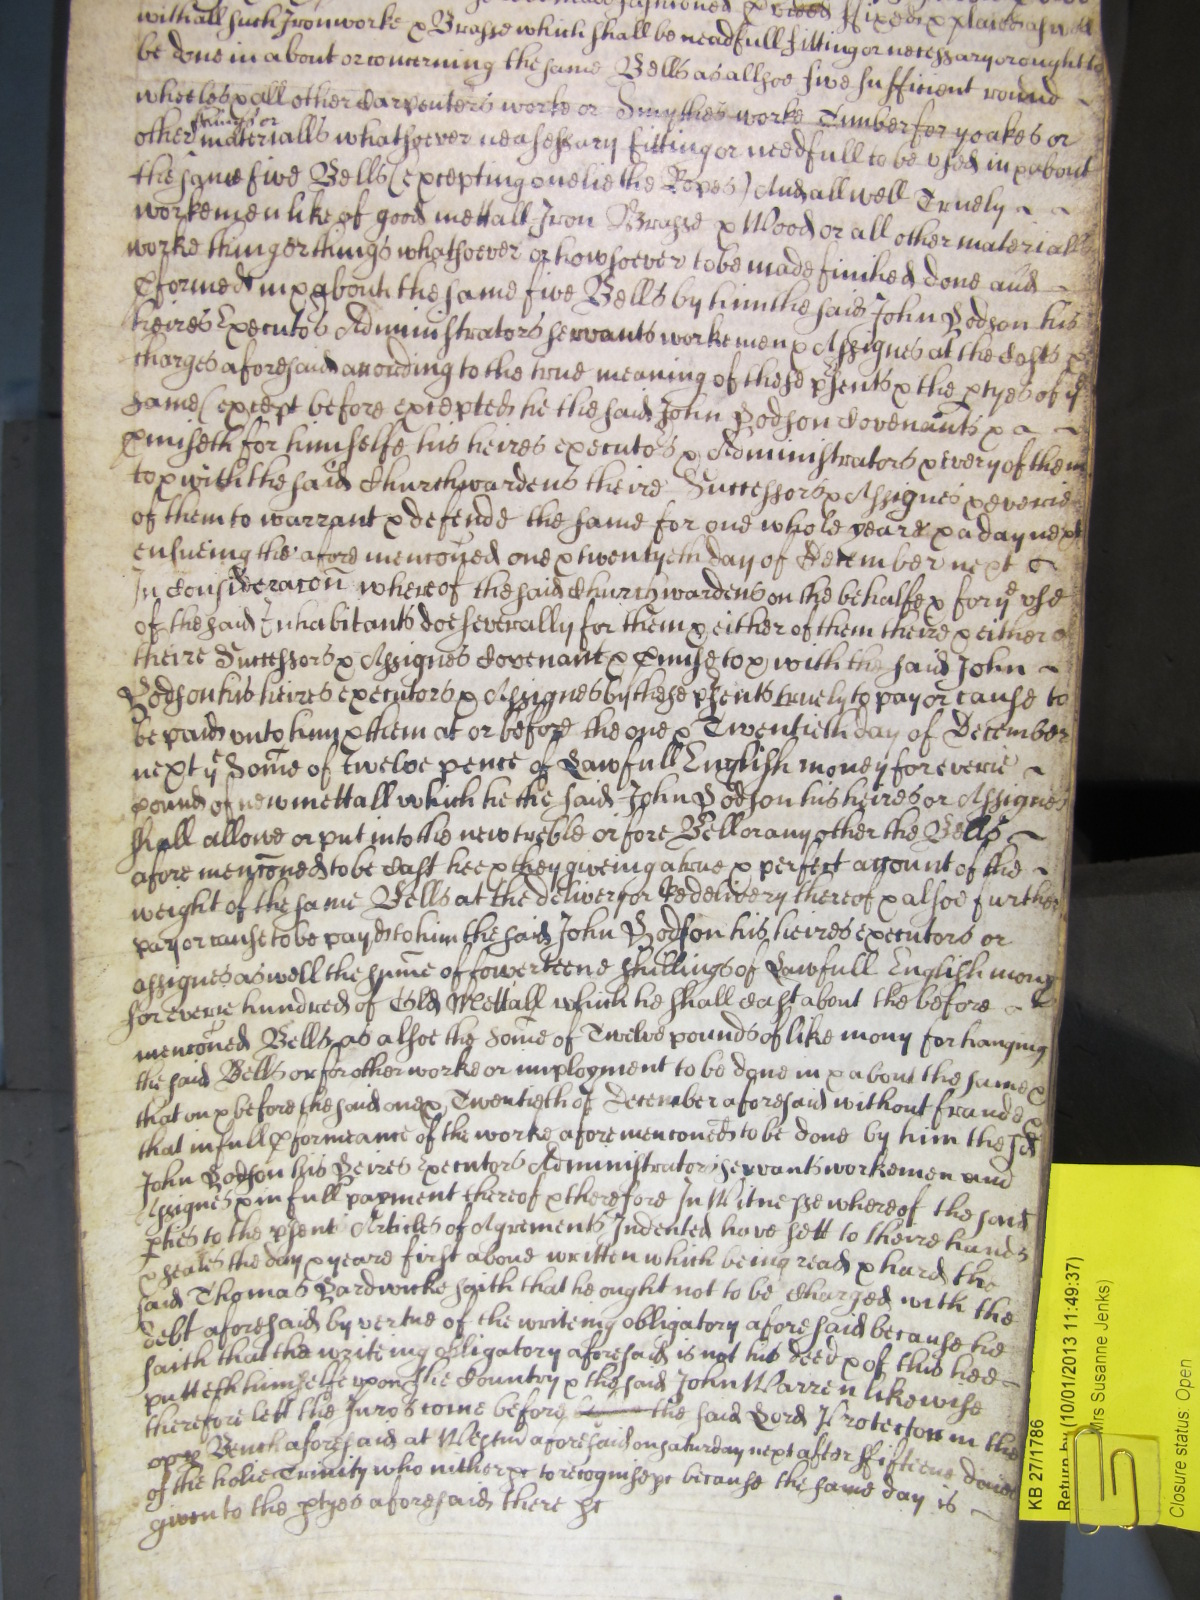 withall such Ironworke & Brasse which shall be neadfull fitting or necessary or ought to
be done in about or concerning the same Bells as allsoe five sufficient round
wheeles & all other Carpenters worke or Smythes worke Timber for yoakes or
other things or materialls whatsoever neasessary fitting or needfull to be used in & about
the same five Bells (excepting onelie the Ropes) And all well Truely
workemenlike of good mettall Iron Brasse & Wood or all other materialls
worke thing or things whatsoever or howsoever to be made finished done and
pformed in & about the same five Bells by him the said John Hodson his
heires Executors Administrators servants workemen & Assignes at the Costs &
charges aforesaid according to the true meaning of these psents & the ptyes of ye
same (except before excepted he the said John Hodson Covenants &
pmiseth for himselfe his heires executors & Administrators & every of them
to & with the said Churchwardens theire Successors & Assignes & everie
of them to warrant & defende the same for one whole yeare & a day next
ensueing the afore menconed one & twentyeth day of December next
In Consideracon whereof the said Churchwardens on the behalfe & for ye use
of the said Inhabitants doe severally for them & either of them theire & either of
theire Successors & Assignes Covenant & pmise to & with the said John
Hodson his heires executors & Assignes by these psents truely to pay or cause to
be paid unto him & them at or before the one & Twentieth day of December
next ye Some of twelve pence of Lawfull English money for everie
pound of new mettall which he the said John Hodson his heires or Assignes
shall allowe or put into the new treble or fore Bell or any other the Bells
afore menconed to be Cast hee & they giveing a true & perfect account of the
weight of the same Bells at the delivery or Redelivery thereof & alsoe further
pay or cause to be payed to him the said John Hodson his heires executors or
assignes as well the sume of fowerteene shillings of Lawfull English mony
for everie hundred of Old Mettall which he shall cast about the before
menconed Bells as alsoe the Some of Twelve pounds of like mony for hanging
the said Bells or for other worke or imployment to be done in & about the same &
that on & before the said one & Twentieth of December aforesaid without fraude &
that in full pformeance of the worke afore menconed to be done by him the sd
John Hodson his Heires Executors Administrators servants workemen and
Assignes & in full payment thereof & therefore In Witnesse whereof the said
pties to the psent Articles of Agrements Indented have sett to theire hands
& seales the day & yeare first above written which being read & hard the
said Thomas Hardwicke saith that he ought not to be Charged with the
debt aforesaid by vertue of the writeing obligatory aforesaid because hee
saith that the writeing obligatory aforesaid is not his deed & of this hee
putteth himselfe upon the Country & the said John Warren likewise
therefore lett the Jurors come before the said Lord Protector in the
upp Bench aforesaid at Westm aforesaid on saturday next after ffifteene daies
of the holie Trinity who neither &c to recognise &c because the same day is
given to the ptyes aforesaid there &c
KB 27/1786
Return by (10/01/2013 11:49:37)
Mrs Susanne Jenks)
Closure status: Open